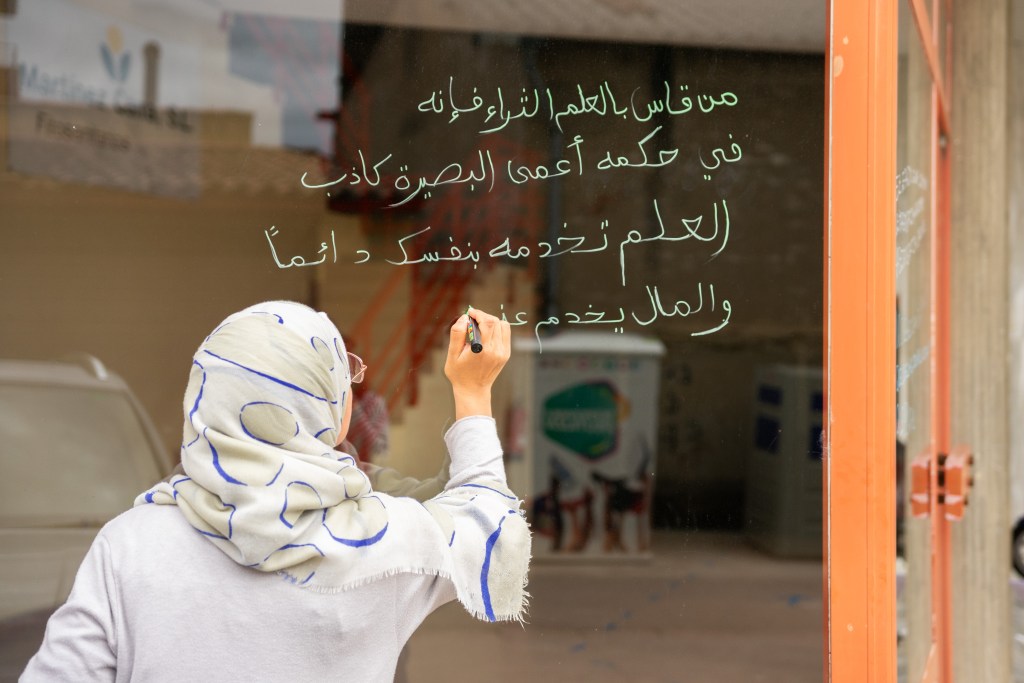 من قاس بالعلم الثراء فإنه
في حكمه أعمى البصيرة كاذب
العلم تخدمه بنفسك دائماً
والمال يخدم عن
Martinez